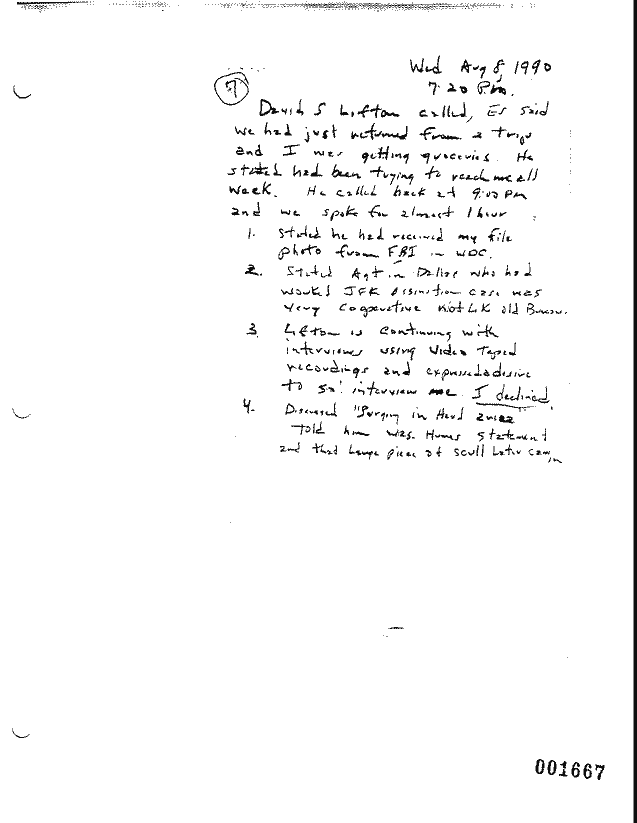 Wed Aug 8, 1990
7:20 Pm.
7
David S Lifton called, Es said
we had just returned from a trip
and I was getting groceries. He
stated had been trying to reach me all
week. He called back at 9:00 PM
and we spoke for almost 1 hour
1. Stated he had received my file
photo from FBI in WDC.
2. Stated Agt in Dallas who had
worked JFK case was
very cooperative not LK old Bureau.
3. Lifton is continuing with
interviews using Video Taped
recordings and expressed a desire
to so interview me. I declined.
4. Discussed "Surgery in Head area
told him was Humes statement
and that Large piece of scull Later came in
001667